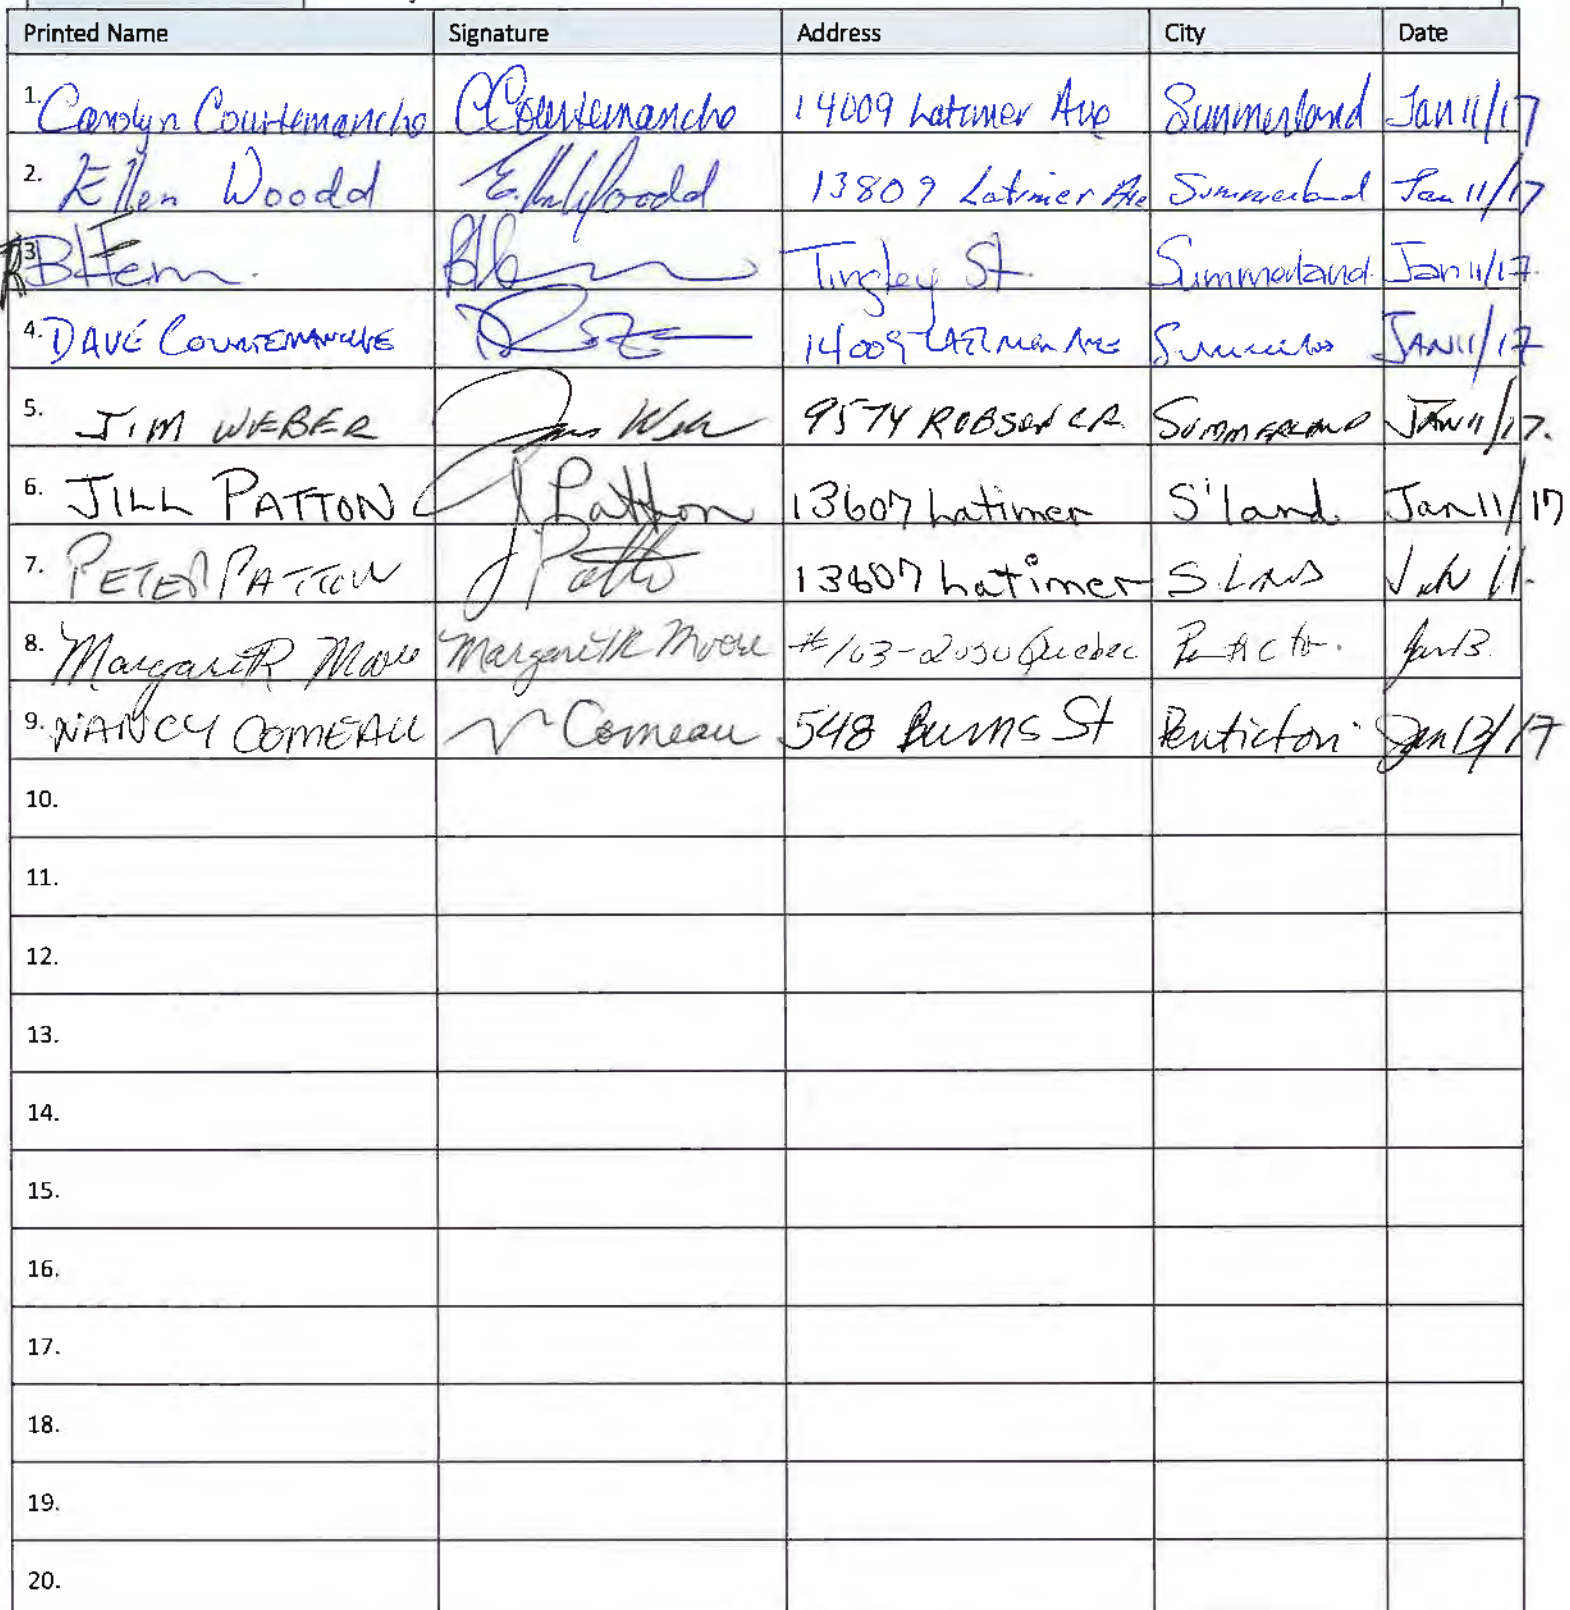 Printed Name Signature Address City Date
1. Carolyn Courtemanche CCourtemanche 14009 Latimer Ave Summerland Jan 11/17
2. Ellen Woodd Ellen Woodd 13809 Latimer Ave Summerland Jan 11/17
3. Tingley St. Summerland Jan 11/17.
4. DAVE COURTEMANCHE 14009 LATIMER AVE JAN 11/17
5. JIM WEBER 9574 ROBSON CR. SUMMERLAND JAN 11/17.
6. JILL PATTON J Patton 13607 Latimer S'land. Jan 11/17
7. PETER PATTON 13607 Latimer S'LAND 11.
8. Margaret R Moore Margaret R Moore #103- Quebec Jan 13.
9. NANCY COMEAU N Comeau 548 Burns St Penticton Jan 13/17
10.
11.
12.
13.
14.
15.
16.
17.
18.
19.
20.